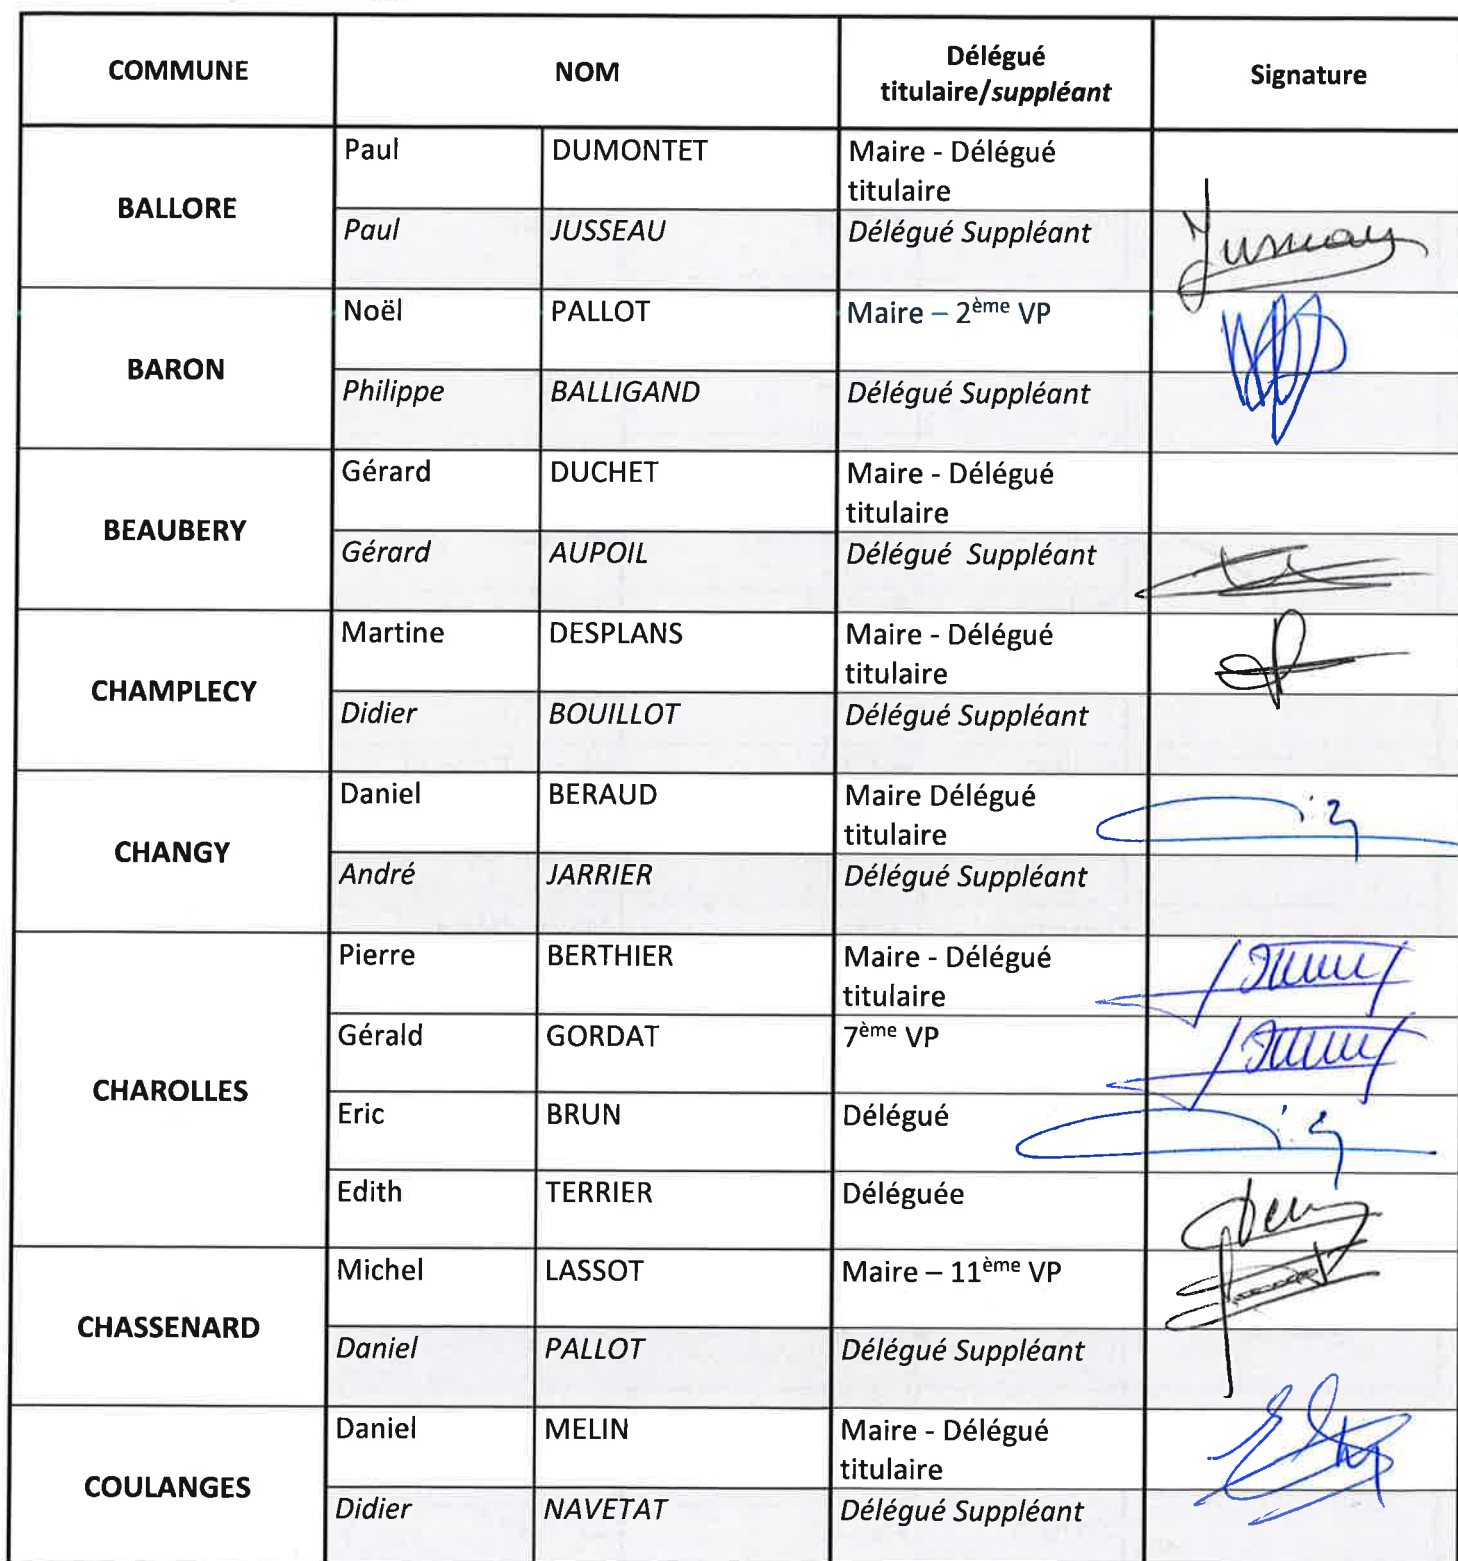 COMMUNE
NOM
Délégué
titulaire/suppléant
Signature
BALLORE
Paul DUMONTET Maire - Délégué
titulaire
Paul JUSSEAU Délégué Suppléant Jusseau
BARON
Noël PALLOT Maire – 2ème VP
Philippe BALLIGAND Délégué Suppléant
BEAUBERY
Gérard DUCHET Maire - Délégué
titulaire
Gérard AUPOIL Délégué Suppléant
CHAMPLECY
Martine DESPLANS Maire - Délégué
titulaire
Didier BOUILLOT Délégué Suppléant
CHANGY
Daniel BERAUD Maire Délégué
titulaire
André JARRIER Délégué Suppléant
CHAROLLES
Pierre BERTHIER Maire - Délégué
titulaire
Gérald GORDAT 7ème VP
Eric BRUN Délégué
Edith TERRIER Déléguée
CHASSENARD
Michel LASSOT Maire – 11ème VP
Daniel PALLOT Délégué Suppléant
COULANGES
Daniel MELIN Maire - Délégué
titulaire
Didier NAVETAT Délégué Suppléant